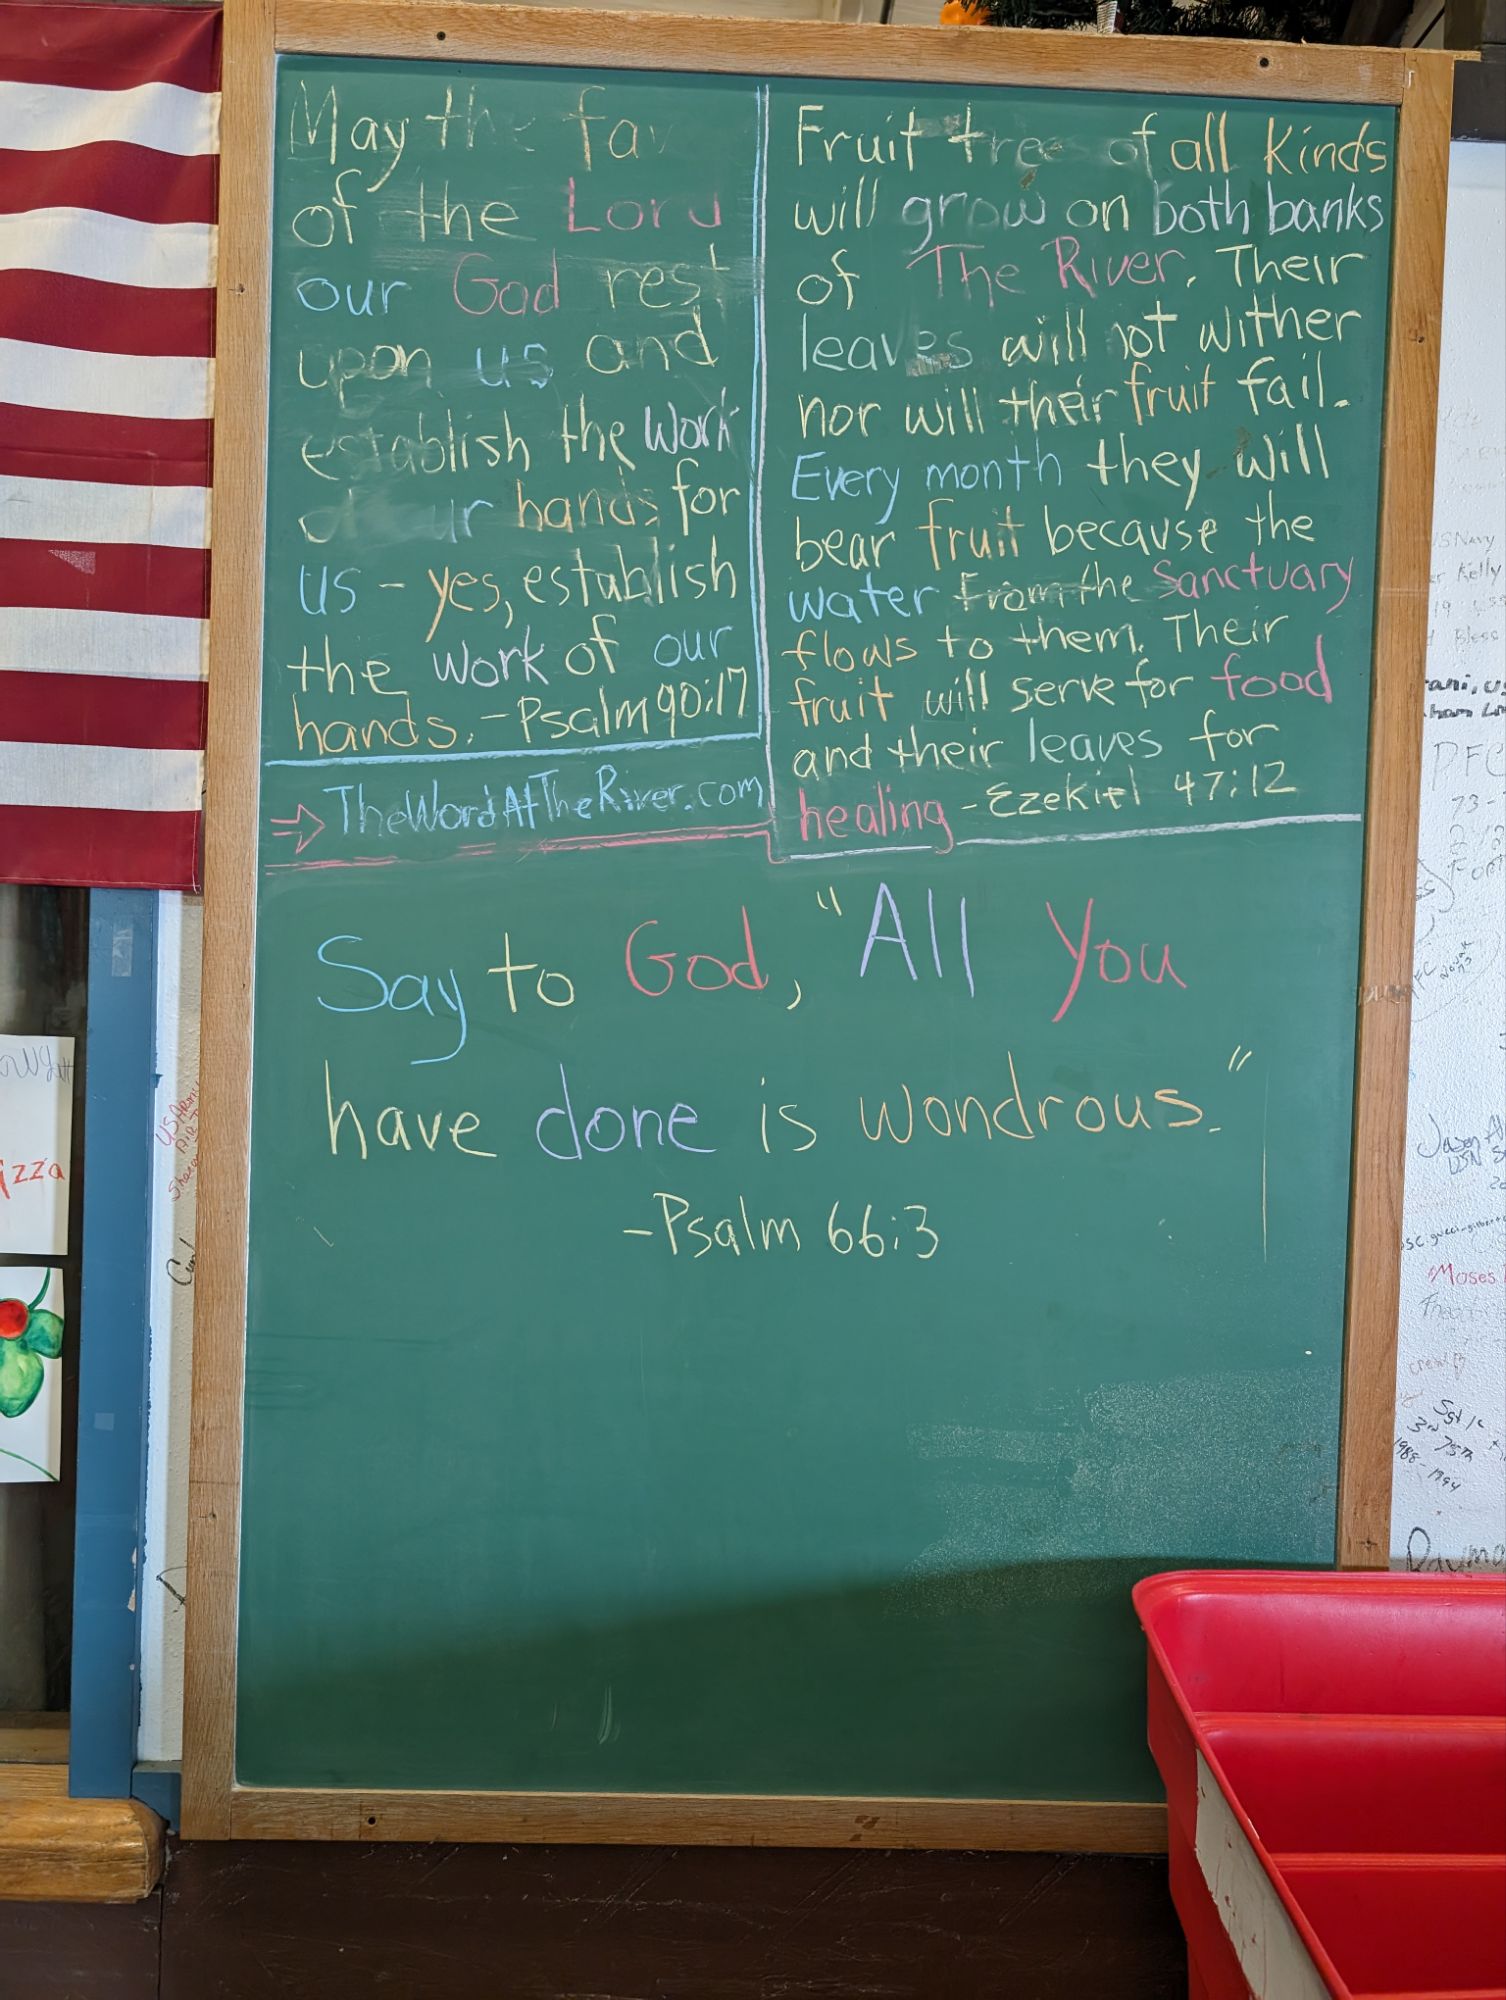 May the fav
of the Lord
our God rest
upon us and
establish the work
of our hands for
us - yes, establish
the work of our
hands. - Psalm 90:17
TheWordAtTheRiver.com
Fruit tree of all kinds
will grow on both banks
of The River. Their
leaves will not wither
nor will their fruit fail.
Every month they will
bear fruit because the
water from the Sanctuary
flows to them. Their
fruit will serve for food
and their leaves for
healing - Ezekiel 47:12
Say to God, "All You
have done is wondrous."
-Psalm 66:3
izza
US ARMY
Navy
Kelly
Bless
PFC
73-
Jason
USN
Moses
Sgt
3rd 75th
1988-1994